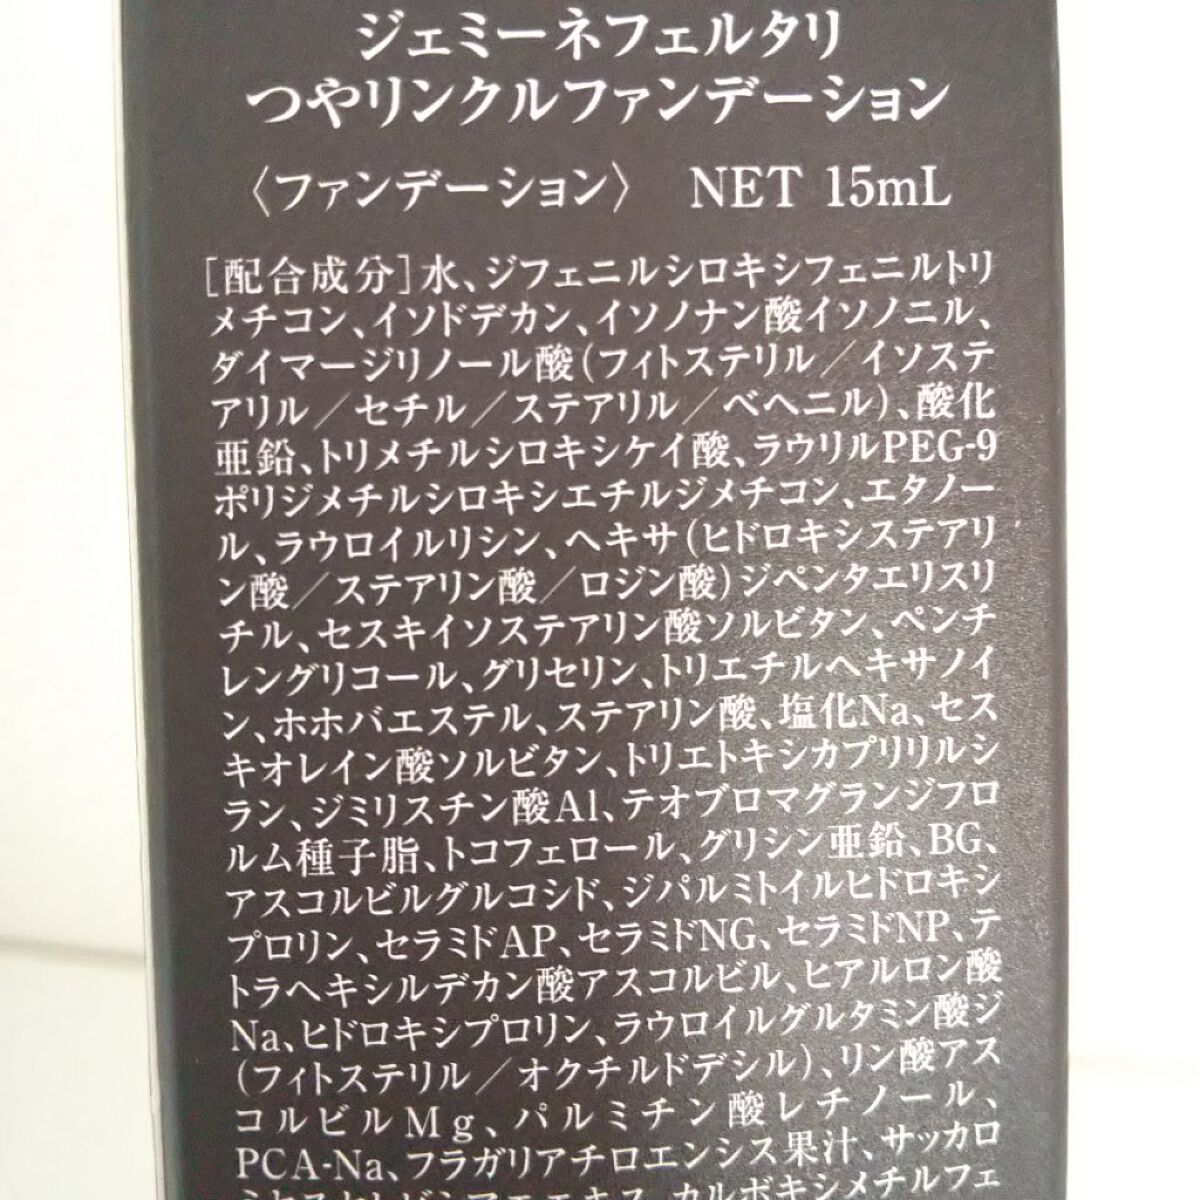 ジェミーネフェルタリ
つやリンクルファンデーション
〈ファンデーション〉 NET 15mL
[配合成分]水、ジフェニルシロキシフェニルトリ
メチコン、イソドデカン、イソノナン酸イソノニル、
ダイマージリノール酸(フィトステリル/イソステ
アリル/セチル/ステアリル/ベヘニル)、酸化
亜鉛、トリメチルシロキシケイ酸、ラウリルPEG-9
ポリジメチルシロキシエチルジメチコン、エタノー
ル、ラウロイルリシン、ヘキサ(ヒドロキシステアリ
ン酸/ステアリン酸/ロジン酸)ジペンタエリスリ
チル、セスキイソステアリン酸ソルビタン、ペンチ
レングリコール、グリセリン、トリエチルヘキサノイ
ン、ホホバエステル、ステアリン酸、塩化Na、セス
キオレイン酸ソルビタン、トリエトキシカプリリルシ
ラン、ジミリスチン酸Al、テオブロマグランジフロ
ルム種子脂、トコフェロール、グリシン亜鉛、BG、
アスコルビルグルコシド、ジパルミトイルヒドロキシ
プロリン、セラミドAP、セラミドNG、セラミドNP、テ
トラヘキシルデカン酸アスコルビル、ヒアルロン酸
Na、ヒドロキシプロリン、ラウロイルグルタミン酸ジ
(フィトステリル/オクチルドデシル)、リン酸アス
コルビルMg、パルミチン酸レチノール、
PCA-Na、フラガリアチロエンシス果汁、サッカロ
カルボキシメチルフェ